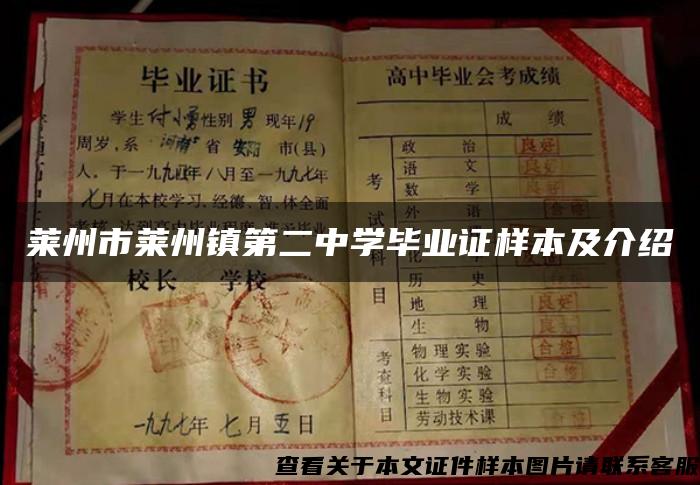 毕业证书
学生付小勇性别男现年19
周岁,系河南省安阳市(县)
人,于一九九四年八月至一九九七年
七月在本校学习,经德、智、体全面
莱州市莱州镇第二中学毕业证样本及介绍
校长 学校
一九九七年七月五日
高中毕业会考成绩
成绩
考试科目
政治 良好
语文 良好
数学 良好
外语 合格
历史
地理 良好
生物 良好
考查科目
物理实验 合格
化学实验 合格
生物实验
劳动技术课 合格
查看关于本文证件样本图片请联系客服